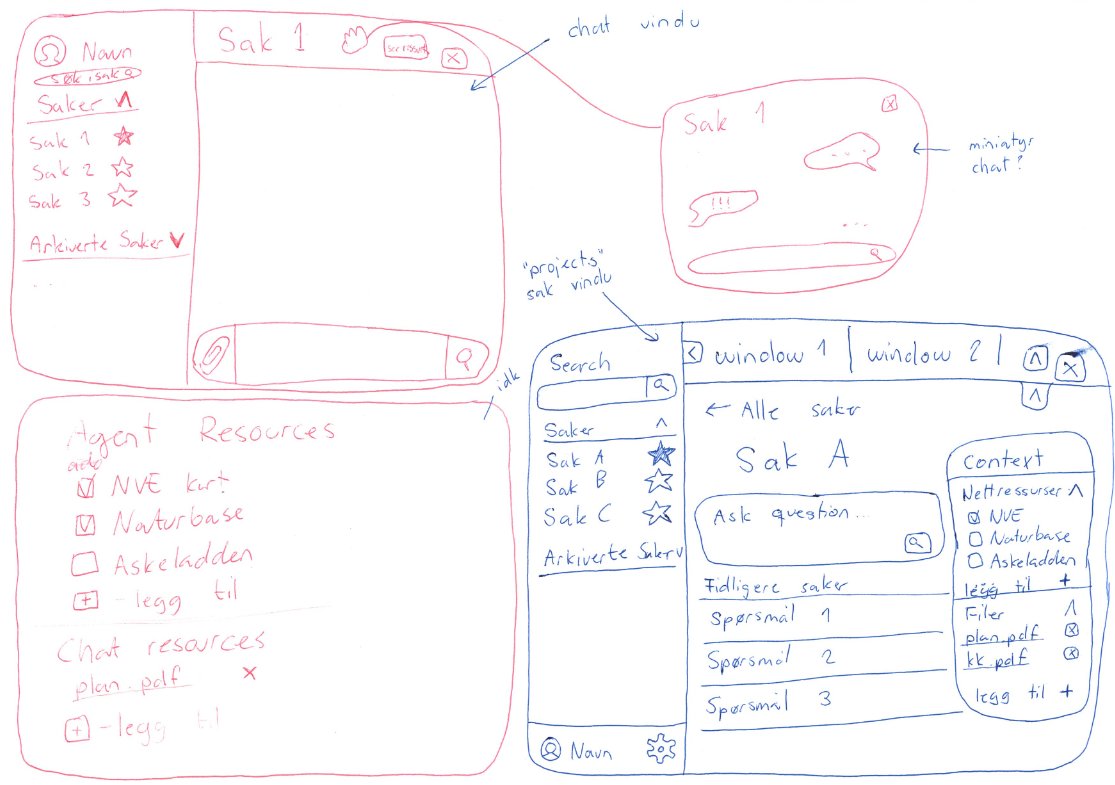 chat vindu
Navn
søk i sak
Saker
Sak 1
Sak 2
Sak 3
Arkiverte Saker
...
Sak 1
Sak 1
...
!!!
...
miniatyr
chat?
"projects"
sak vindu
idk
Agent Resources
add
NVE kart
Naturbase
Askeladden
+ - legg til
Chat resources
plan.pdf x
+ - legg til
Search
Saker
Sak A
Sak B
Sak C
Arkiverte Saker
Navn
window 1 window 2
← Alle saker
Sak A
Ask question...
Tidligere saker
Spørsmål 1
Spørsmål 2
Spørsmål 3
Context
Nettressurser
NVE
Naturbase
Askeladden
legg til +
Filer
plan.pdf x
kk.pdf x
legg til +